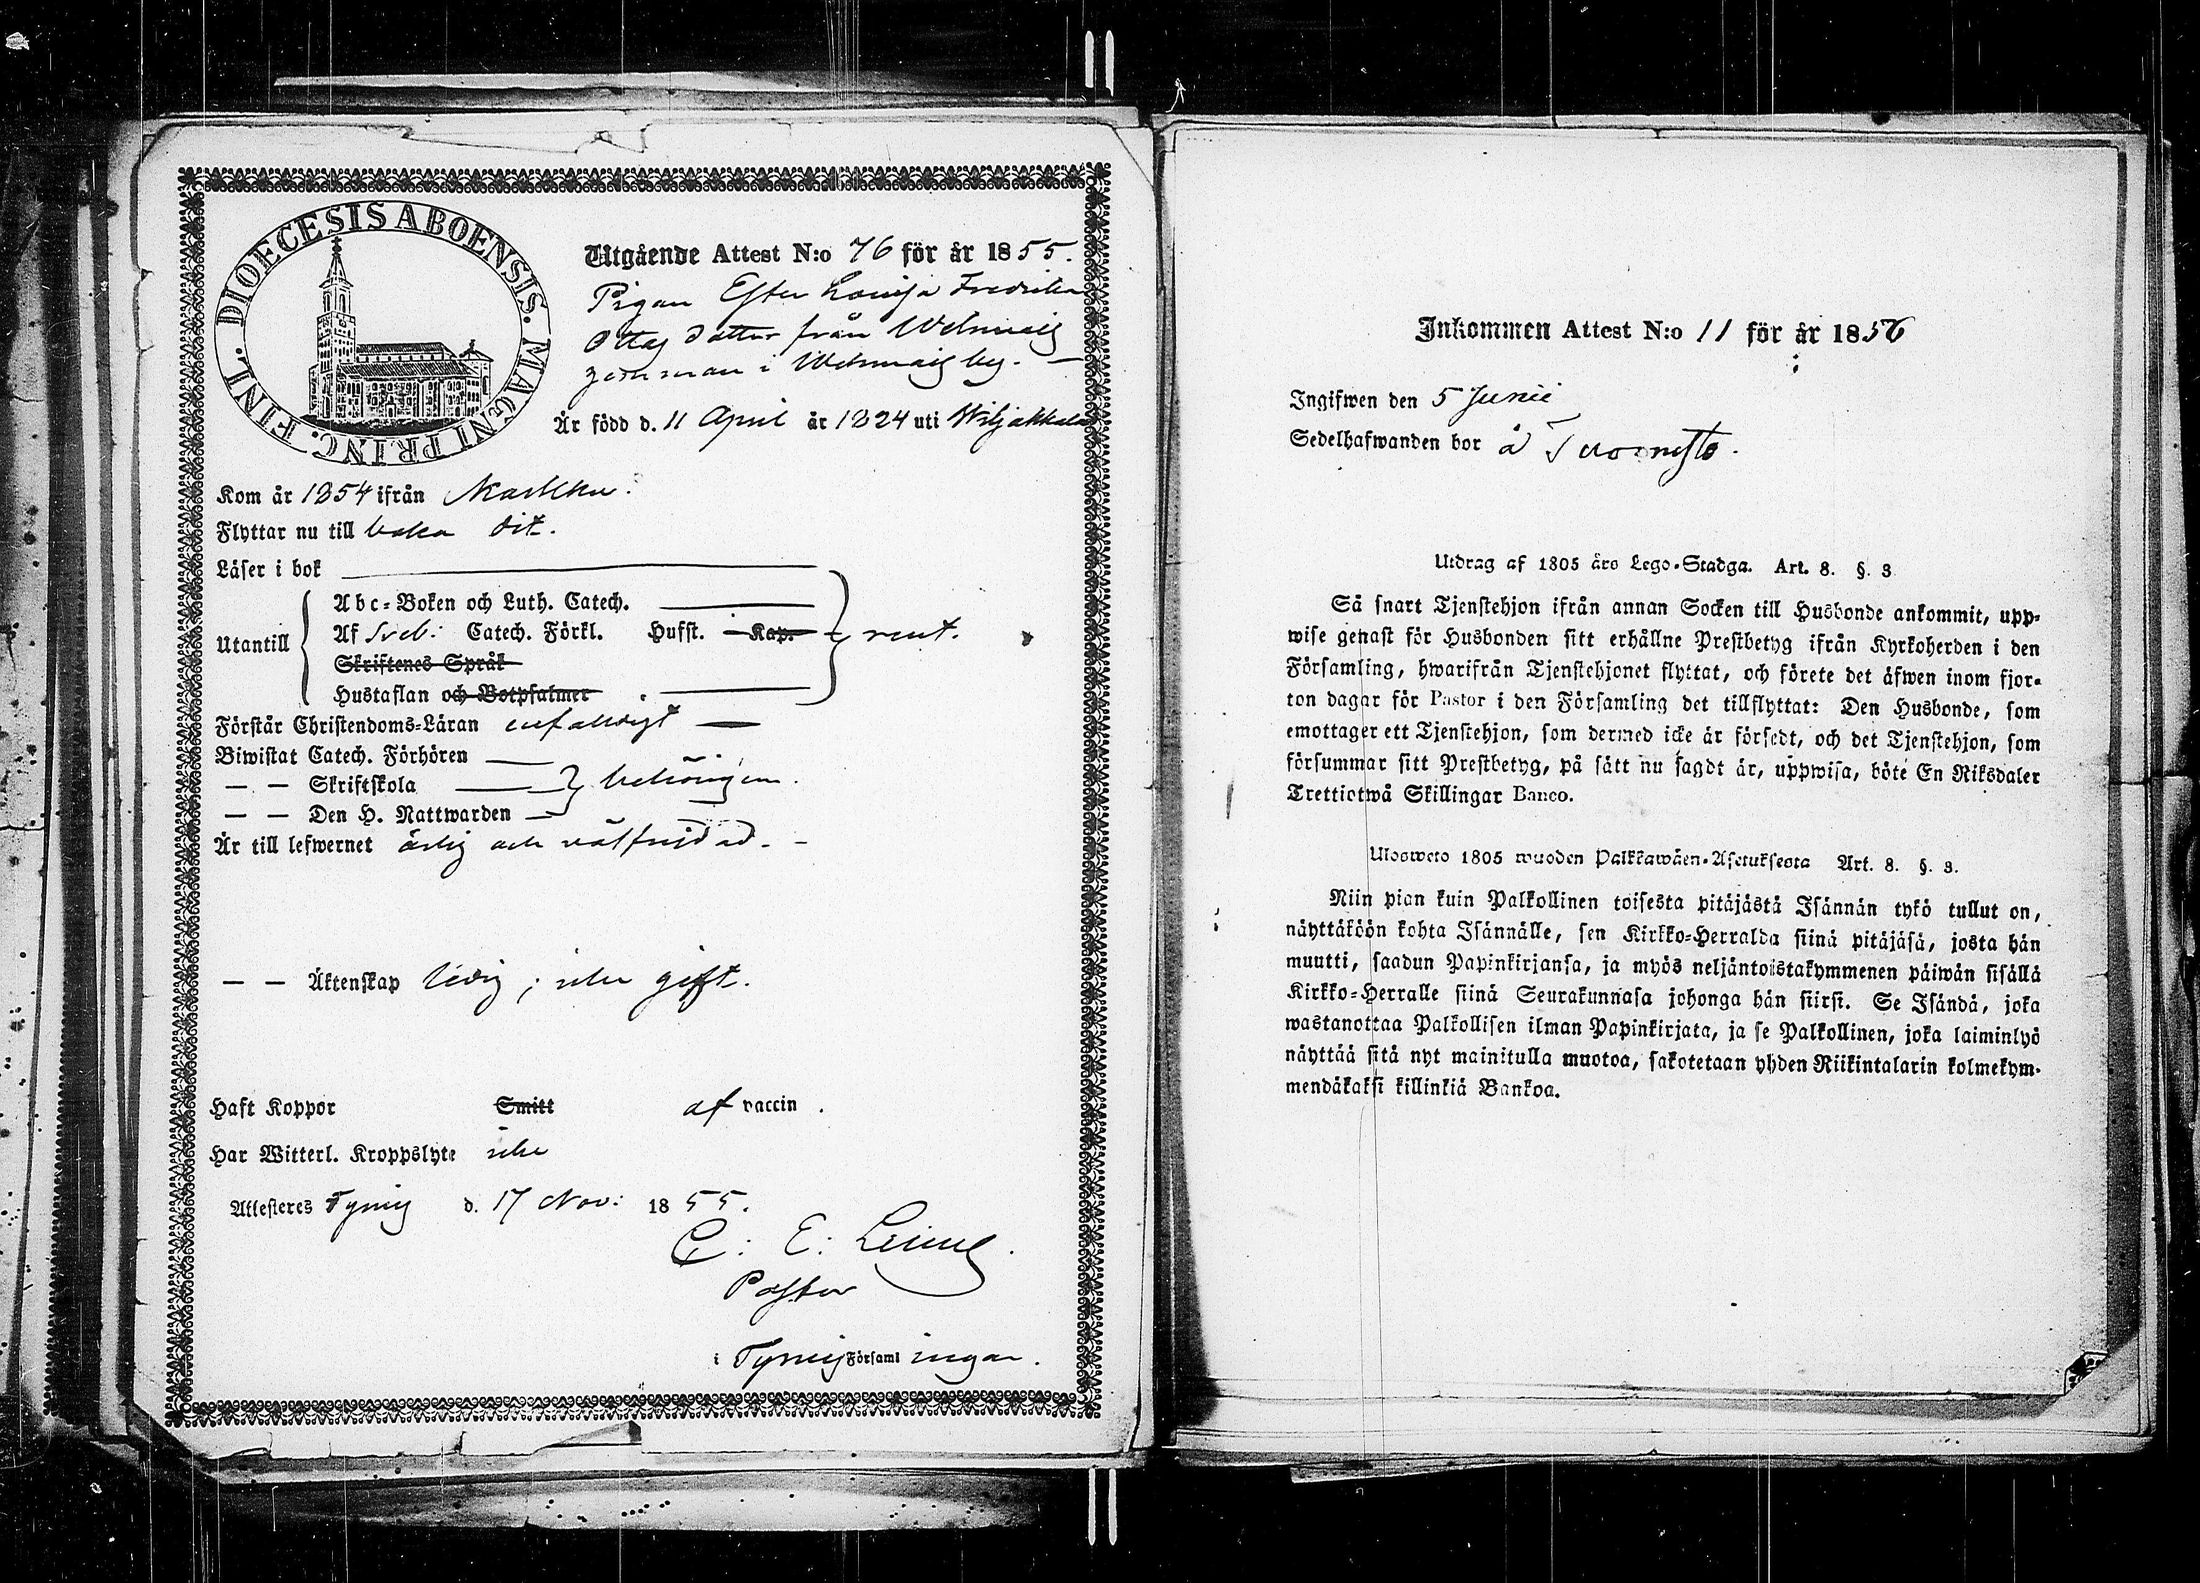 DIOECESIS ABOENSIS. MAGNI PRINC. FINL.
Utgående Attest N:o 76 för år 1855.
Pigan Ester Lovisa Fredrika
Ottas dotter från Wehmais
i Wehmais by. —
Är född d. 11 April år 1824 uti Wiljakkala
Kom år 1854 ifrån Karkku.
Flyttar nu till baka dit.
Läser i bok
Abc-Boken och Luth. Catech.
Utantill Af Sveb: Catech. Förkl. Husst. Kap. rent.
Skriftenes Språk
Hustaflan och Botpsalmer
Förstår Christendoms-Läran enfaldigt —
Biwistat Catech. Förhören
— — Skriftskola behörigen.
— — Den H. Nattwarden
Är till lefwernet ärlig och välfrejdad. -
— — Äktenskap ledig; icke gift.
Haft Koppor Smitt af vaccin.
Har Witterl. Kroppslyte icke
Attesteres Tyrvis d. 17 Nov: 1855.
C: E:
Pastor
i Tyrvis Församl ingar.
Inkommen Attest N:o 11 för år 1856
Ingifwen den 5 Junii
Sedelhafwanden bor å
Utdrag af 1805 års Lego-Stadga. Art. 8. §. 3
Så snart Tjenstehjon ifrån annan Socken till Husbonde ankommit, upp-
wise genast för Husbonden sitt erhållne Prestbetyg ifrån Kyrkoherden i den
Församling, hwarifrån Tjenstehjonet flyttat, och förete det äfwen inom fjor-
ton dagar för Pastor i den Församling det tillflyttat: Den Husbonde, som
emottager ett Tjenstehjon, som dermed icke är försedt, och det Tjenstehjon, som
försummar sitt Prestbetyg, på sätt nu sagdt är, uppwisa, böte En Riksdaler
Trettiotwå Skillingar Banco.
Ulosweto 1805 wuoden Palkkawäen-Asetuksesta Art. 8. §. 3.
Niin pian kuin Palkollinen toisesta pitäjästä Isännän tykö tullut on,
näyttäköön kohta Isännälle, sen Kirkko-Herralda siinä pitäjäsä, josta hän
muutti, saadun Papinkirjansa, ja myös neljäntoistakymmenen päiwän sisällä
Kirkko-Herralle siinä Seurakunnasa johonga hän siirsi. Se Isändä, joka
wastanottaa Palkollisen ilman Papinkirjata, ja se Palkollinen, joka laiminlyö
näyttää sitä nyt mainitulla muotoa, sakotetaan yhden Riikintalarin kolmekym-
mendäkaksi killinkiä Bankoa.